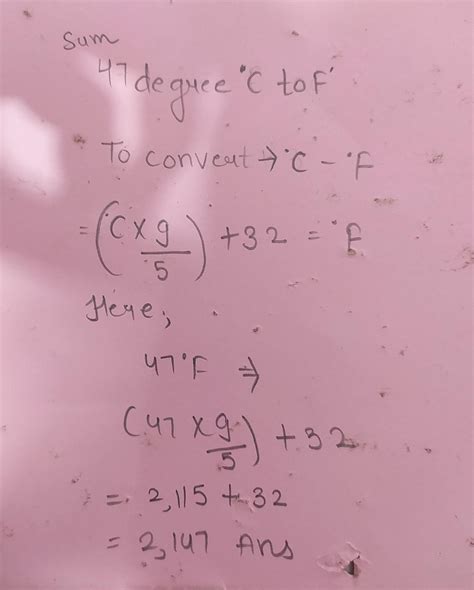 Sum
47 degree °C to F
To convert → °C - °F
= (°C x 9/5) + 32 = °F
Here,
47°F ⇒
(47 x 9/5) + 32
= 2,115 + 32
= 2,147 Ans